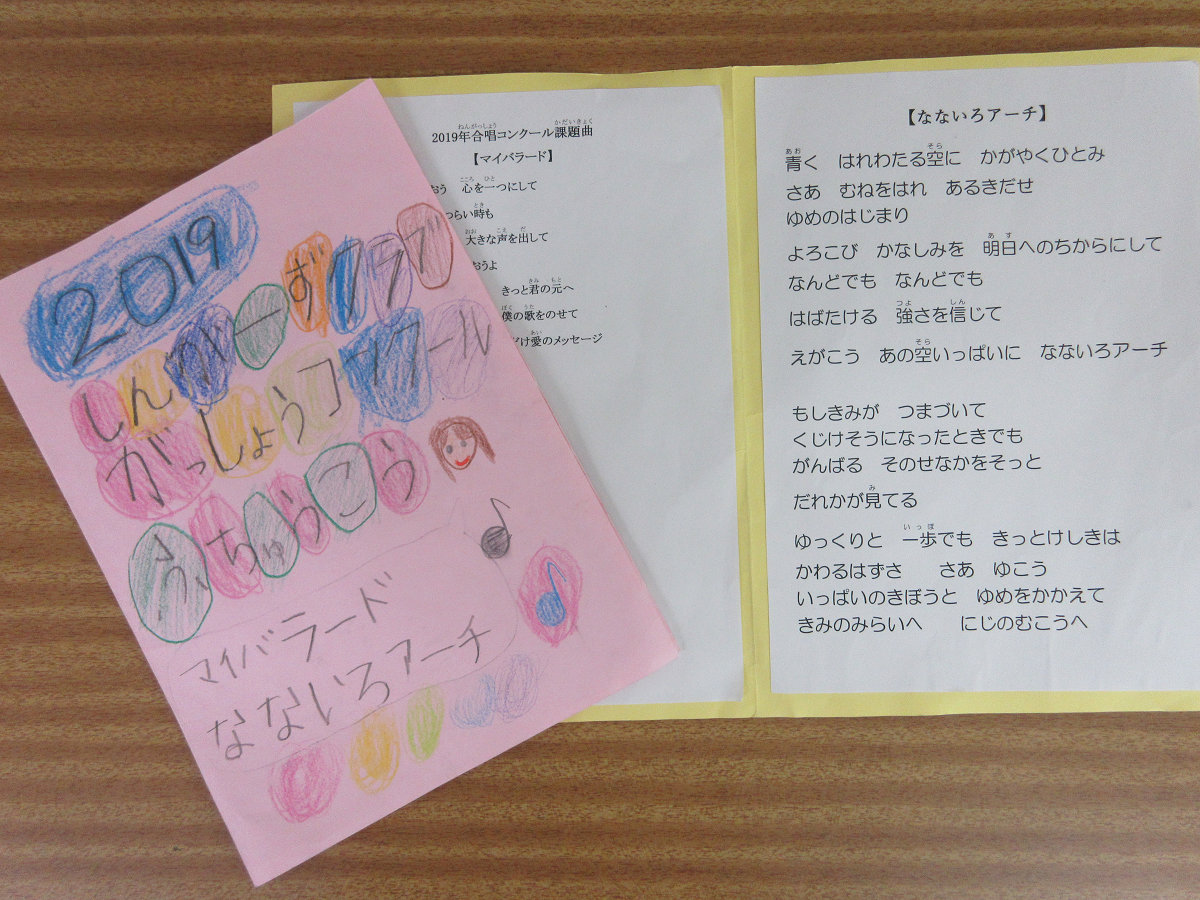 2019
しんがーずクラブ
がっしょうコンクール
ふちゅうこう
マイバラード
なないろアーチ
2019年合唱コンクール課題曲
ねんがっしょう かだいきょく
【マイバラード】
おう 心を一つにして
こころ ひと
つらい時も
とき
大きな声を出して
おお こえ だ
おうよ
きっと君の元へ
きみ もと
僕の歌をのせて
ぼく うた
だけ愛のメッセージ
あい
【なないろアーチ】
青く はれわたる空に かがやくひとみ
あお そら
さあ むねをはれ あるきだせ
ゆめのはじまり
よろこび かなしみを 明日へのちからにして
あす
なんどでも なんどでも
はばたける 強さを信じて
つよ しん
えがこう あの空いっぱいに なないろアーチ
そら
もしきみが つまづいて
くじけそうになったときでも
がんばる そのせなかをそっと
だれかが見てる
み
ゆっくりと 一歩でも きっとけしきは
いっぽ
かわるはずさ さあ ゆこう
いっぱいのきぼうと ゆめをかかえて
きみのみらいへ にじのむこうへ